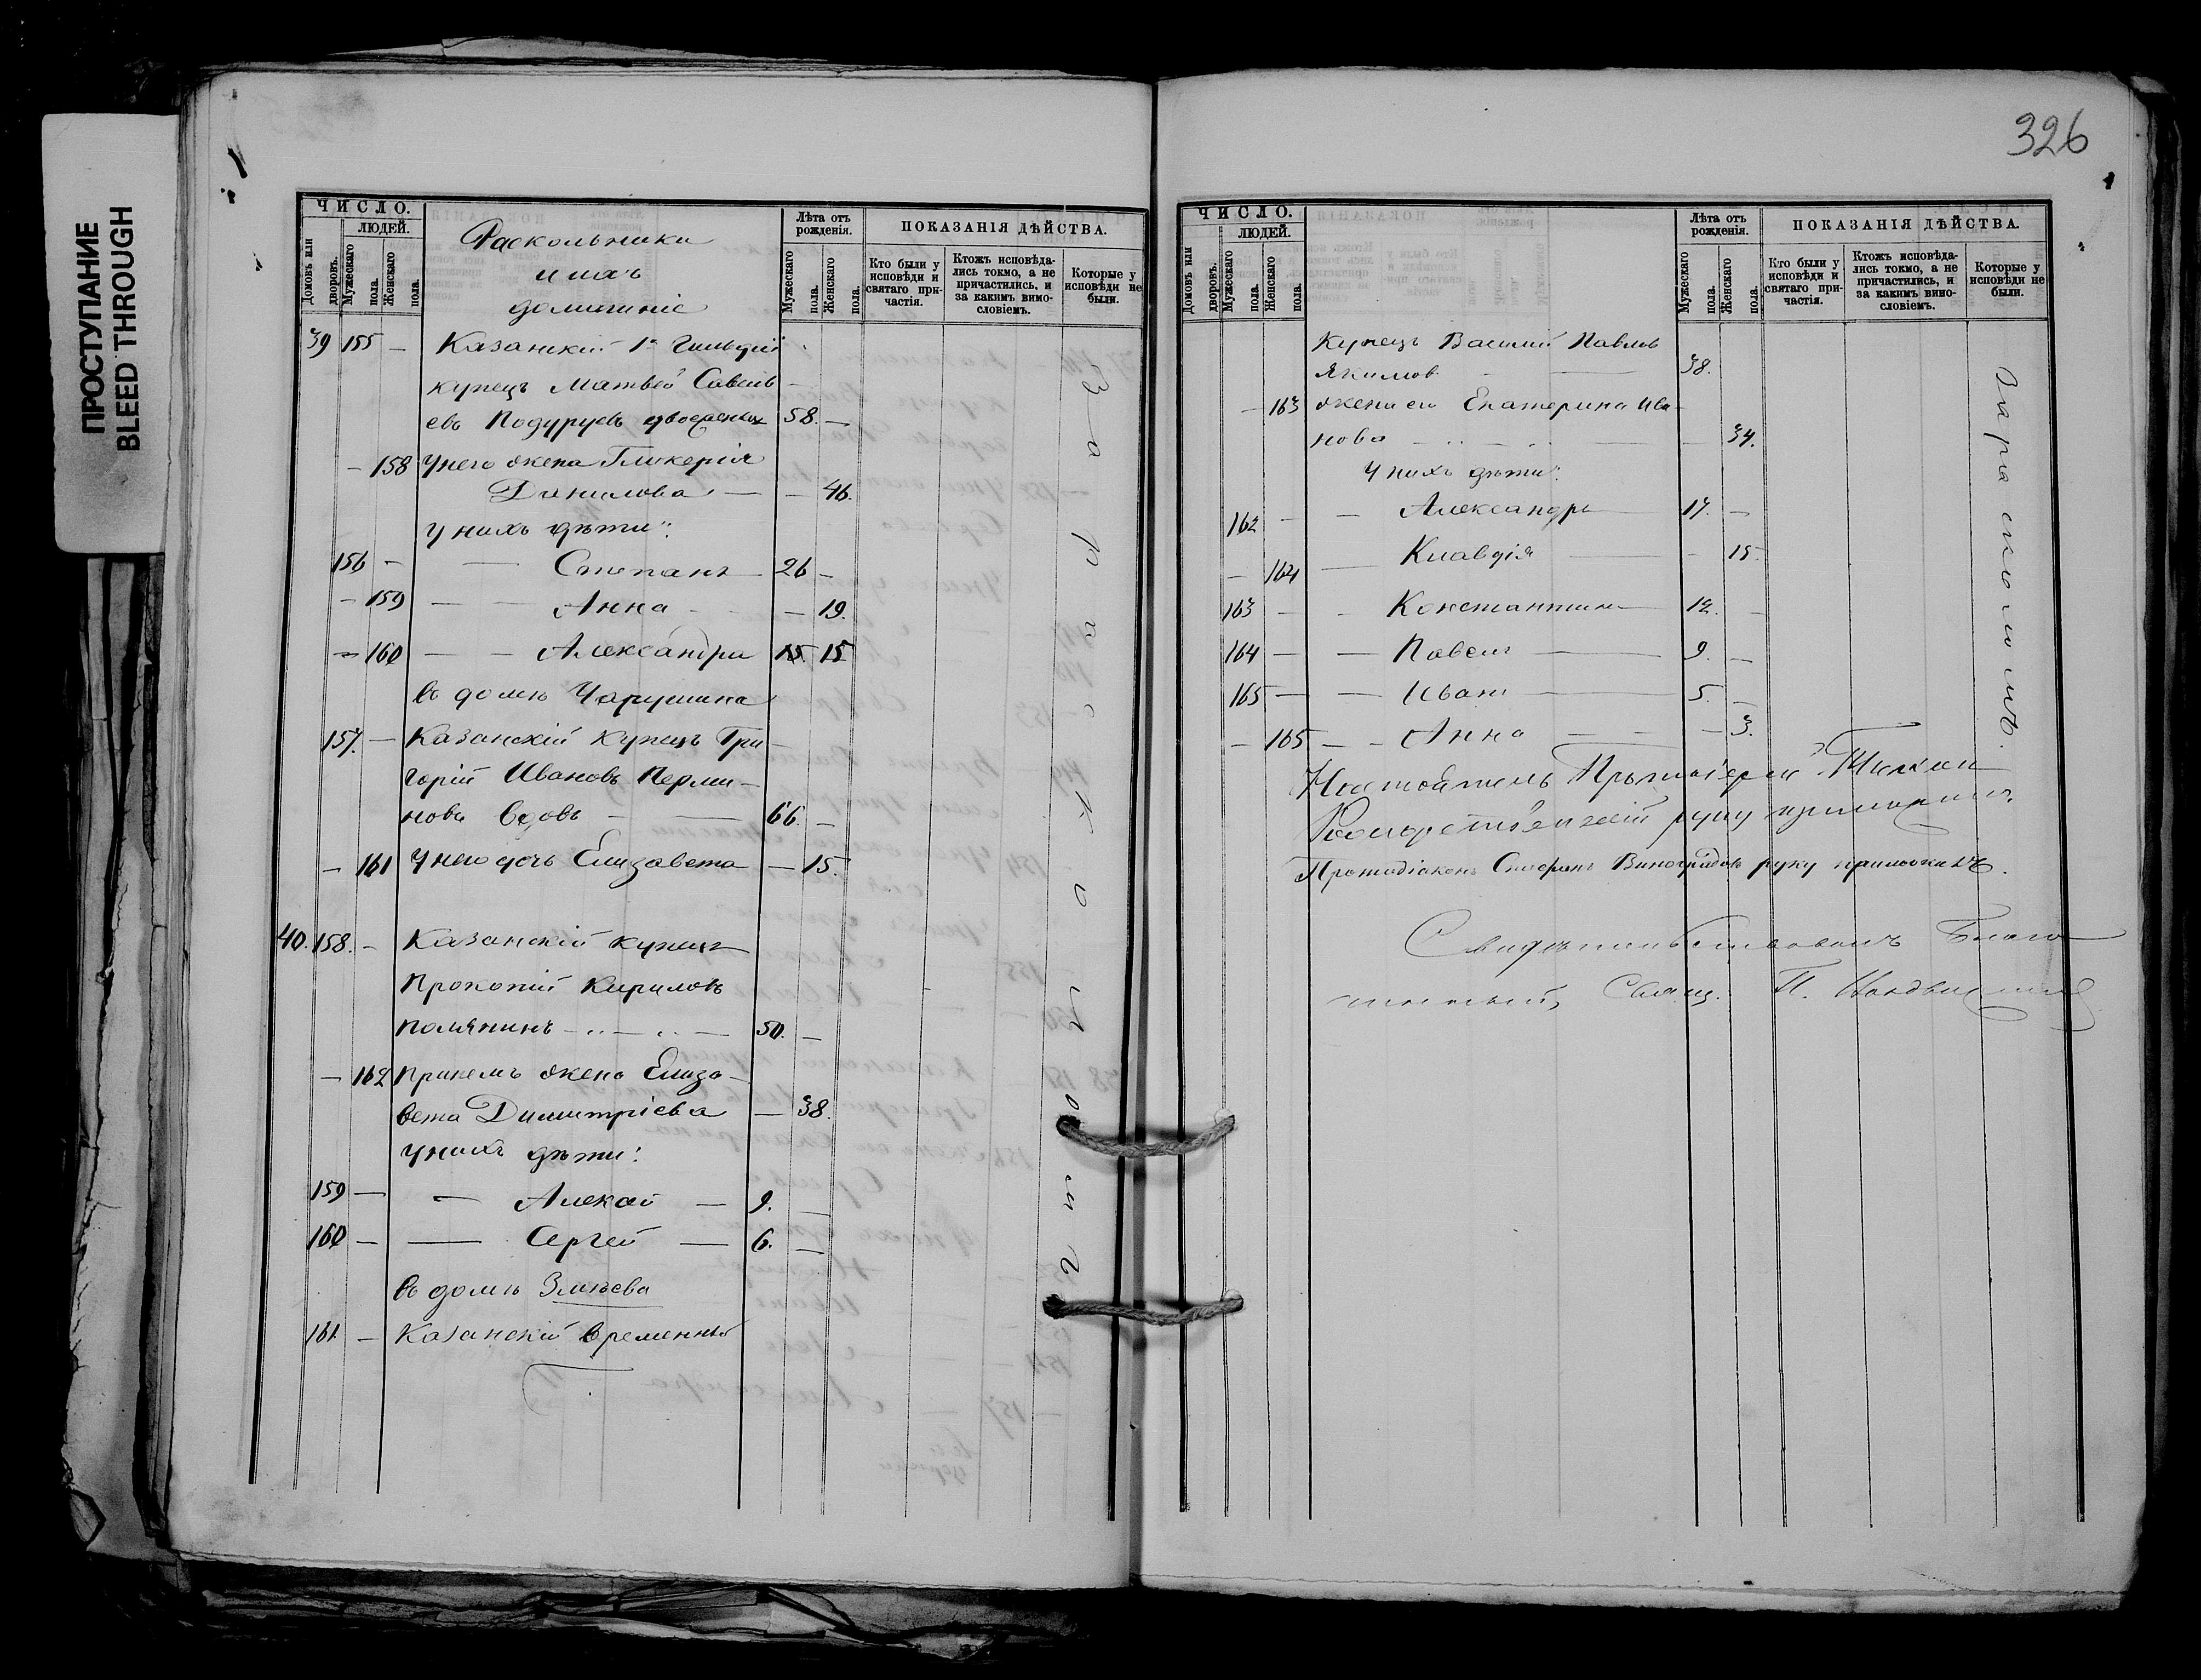 ПРОСТУПАНИЕ
BLEED THROUGH
ЧИСЛО.
ЛЮДЕЙ.
Домовъ или дворовъ.
Мужескаго пола.
Женскаго пола.
Раскольники
и ихъ
домашніе
Лѣта отъ рожденія.
Мужескаго пола.
Женскаго пола.
ПОКАЗАНІЯ ДѢЙСТВА.
Кто были у исповѣди и святаго причастія.
Ктожъ исповѣдались токмо, а не причастились, и за какимъ винословіемъ.
Которые у исповѣди не были.
39 155 — Казанскій 1й Гильдіи
купецъ Матвей Савель
евъ Подуруевъ 58. —
— 158 У него жена Гликерія
Данилова — — 46.
У нихъ дѣти:
156 — — Степанъ 26 —
— 159 — — Анна — 19.
— 160 — — Александра 15
въ домѣ Чарушина
157. — Казанскій купецъ Гри
горій Ивановъ Перми—
новъ вдовъ — — 66. —
— 161 У него дочь Елизавета — 15.
40. 158. — Казанскій купецъ
Прокопій Кириловъ
Полянинъ — 50. —
— 162 При немъ жена Елиза—
вета Димитріева — 38.
У нихъ дѣти:
159 — — Алексѣй — 9. —
160 — — Сергей — 6. —
въ домѣ Змѣева
161 — Казанскій временный
За расколомъ
326
ЧИСЛО.
ЛЮДЕЙ.
Домовъ или дворовъ.
Мужескаго пола.
Женскаго пола.
Лѣта отъ рожденія.
Мужескаго пола.
Женскаго пола.
ПОКАЗАНІЯ ДѢЙСТВА.
Кто были у исповѣди и святаго причастія.
Ктожъ исповѣдались токмо, а не причастились, и за какимъ винословіемъ.
Которые у исповѣди не были.
Купецъ Василій Павловъ
Якимовъ — 38.
— 163 Жена его Екатерина Ива—
нова — — 34.
У нихъ дѣти:
162 — — Александръ 17. —
— 164 — Клавдія — — 15
163 — — Константинъ 12. —
164 — — Павелъ — 9. —
165 — — Иванъ — 5. —
— 165 — — Анна — — 3.
За расколомъ.
Настоятель Протоіерей
руку приложилъ.
Протодіаконъ Виноградовъ руку приложилъ.
Свидѣтельствовалъ Благо
чинный, Свящ. П.